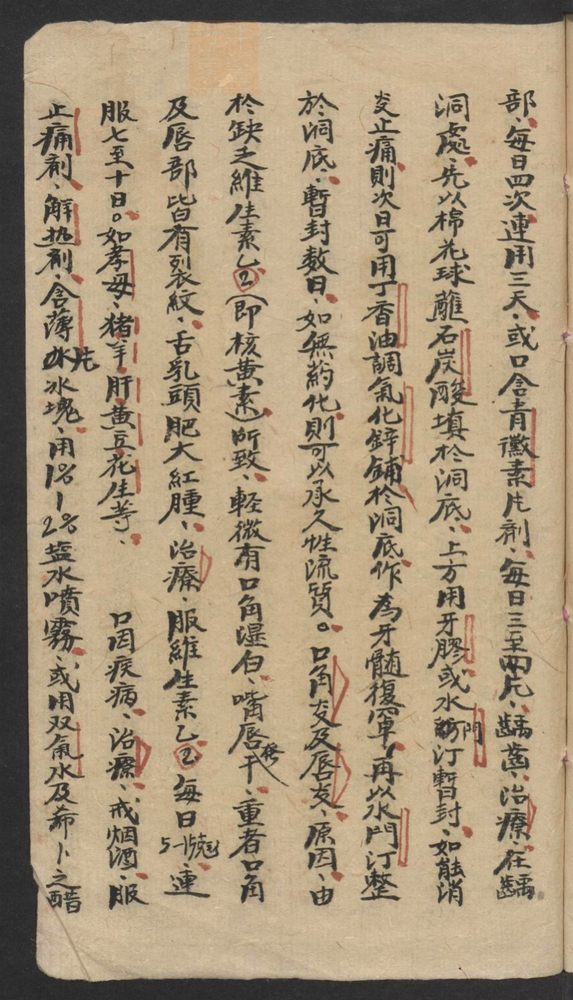 部、每日四次連用三天、或口含青黴素片劑、每日三至四片、齲齒、治療、在齲
洞處、先以棉花球蘸石炭酸填於洞底、上方用牙膠或水門汀暫封、如能消
炎止痛、則次日可用丁香油調氧化鋅鋪於洞底、作為牙髓復罩、再以水門汀整
於洞底、暫封數日、如無葯化則可以永久性流質。口角炎及唇炎、原因、由
於缺乏維生素乙②(即核黃素)所致、輕微有口角濕白、嘴唇干、重者口角
及唇部皆有裂紋、舌乳頭肥大紅腫、治療、服維生素乙②每日5-15克、連
服七至十日。如孝母、猪羊肝黃豆花生等、 口因疾病、治療、戒烟酒、服
止痛劑、解热劑、含薄冰片冰塊、用1%-2%盐水噴霧、或用双氧水及希卜之醋